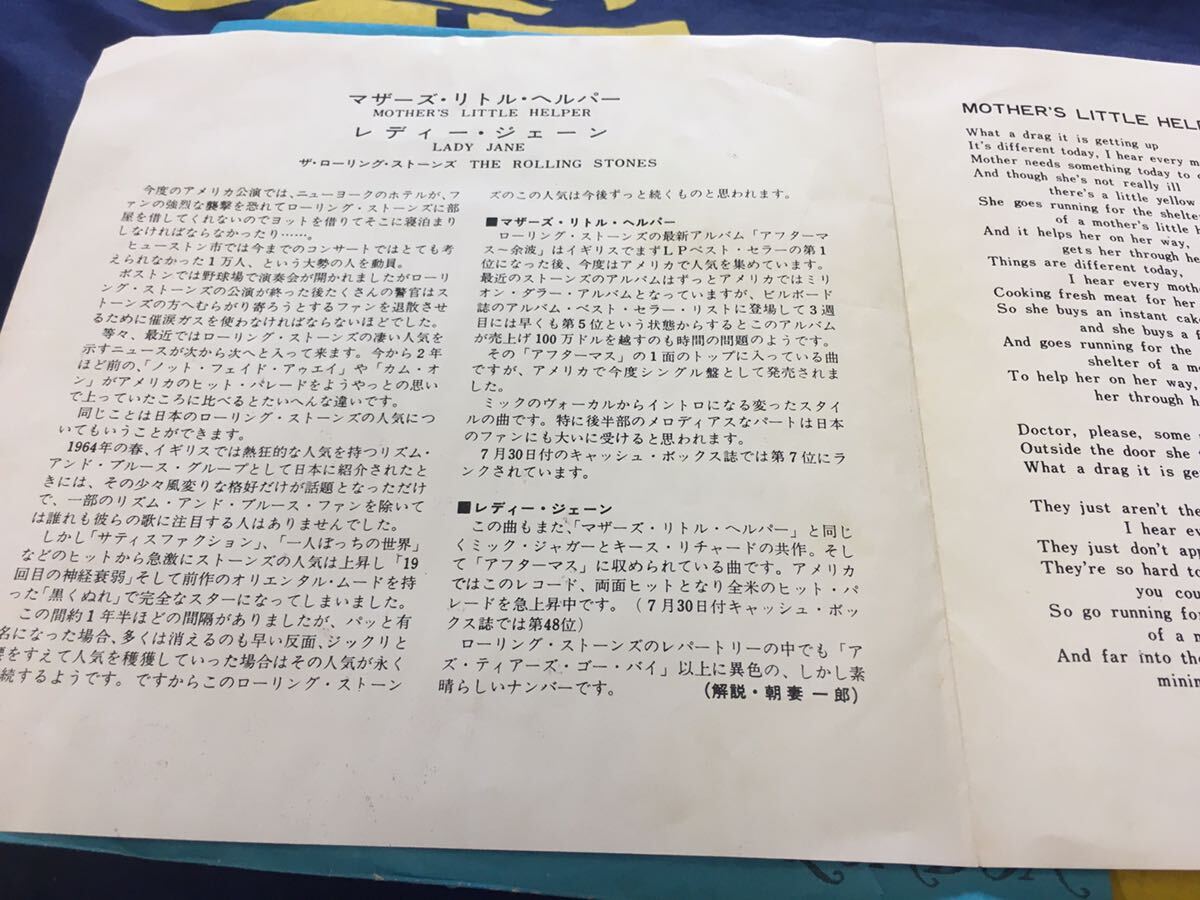 マザーズ・リトル・ヘルパー
MOTHER'S LITTLE HELPER
レディー・ジェーン
LADY JANE
ザ・ローリング・ストーンズ THE ROLLING STONES
今度のアメリカ公演では、ニューヨークのホテルが、フ
ァンの強烈な襲撃を恐れてローリング・ストーンズに部
屋を借してくれないのでヨットを借りてそこに寝泊まり
しなければならなかったり……。
ヒューストン市では今までのコンサートではとても考
えられなかった1万人、という大勢の人を動員。
ボストンでは野球場で演奏会が開かれましたがローリ
ング・ストーンズの公演が終った後たくさんの警官はス
トーンズの方へむらがり寄ろうとするファンを退散させ
るために催涙ガスを使わなければならないほどでした。
等々、最近ではローリング・ストーンズの凄い人気を
示すニュースが次から次へと入って来ます。今から2年
ほど前の、「ノット・フェイド・アゥエイ」や「カム・オ
ン」がアメリカのヒット・パレードをようやっとの思い
で上っていたころに比べるとたいへんな違いです。
同じことは日本のローリング・ストーンズの人気につ
いてもいうことができます。
1964年の春、イギリスでは熱狂的な人気を持つリズム・
アンド・ブルース・グループとして日本に紹介されたと
きには、その少々風変りな格好だけが話題となっただけ
で、一部のリズム・アンド・ブルース・ファンを除いて
は誰れも彼らの歌に注目する人はありませんでした。
しかし「サティスファクション」、「一人ぼっちの世界」
などのヒットから急激にストーンズの人気は上昇し「19
回目の神経衰弱」そして前作のオリエンタル・ムードを持
った「黒くぬれ」で完全なスターになってしまいました。
この間約1年半ほどの間隔がありましたが、パッと有
名になった場合、多くは消えるのも早い反面、ジックリと
をすえて人気を穫獲していった場合はその人気が永く
続するようです。ですからこのローリング・ストーン
ズのこの人気は今後ずっと続くものと思われます。
■マザーズ・リトル・ヘルパー
ローリング・ストーンズの最新アルバム「アフターマ
ス～余波」はイギリスでまずLPベスト・セラーの第1
位になった後、今度はアメリカで人気を集めています。
最近のストーンズのアルバムはずっとアメリカではミリ
オン・ダラー・アルバムとなっていますが、ビルボード
誌のアルバム・ベスト・セラー・リストに登場して3週
目には早くも第5位という状態からするとこのアルバム
が売上げ100万ドルを越すのも時間の問題のようです。
その「アフターマス」の1面のトップに入っている曲
ですが、アメリカで今度シングル盤として発売されま
した。
ミックのヴォーカルからイントロになる変ったスタイ
ルの曲です。特に後半部のメロディアスなパートは日本
のファンにも大いに受けると思われます。
7月30日付のキャッシュ・ボックス誌では第7位にラ
ンクされています。
■レディー・ジェーン
この曲もまた、「マザーズ・リトル・ヘルパー」と同じ
くミック・ジャガーとキース・リチャードの共作。そし
て「アフターマス」に収められている曲です。アメリカ
ではこのレコード、両面ヒットとなり全米のヒット・パ
レードを急上昇中です。(7月30日付キャッシュ・ボッ
クス誌では第48位)
ローリング・ストーンズのレパートリーの中でも「ア
ズ・ティアーズ・ゴー・バイ」以上に異色の、しかし素
晴らしいナンバーです。 (解説・朝妻一郎)
MOTHER'S LITTLE HELP
What a drag it is getting up
It's different today, I hear every m
Mother needs something today to c
And though she's not really ill
there's a little yellow
She goes running for the shelte
of a mother's little h
And it helps her on her way,
gets her through he
Things are different today,
I hear every moth
Cooking fresh meat for her
So she buys an instant cake
and she buys a f
And goes running for the
shelter of a mo
To help her on her way,
her through h
Doctor, please, some
Outside the door she
What a drag it is ge
They just aren't the
I hear ev
They just don't app
They're so hard to
you cou
So go running for
of a m
And far into the
minin